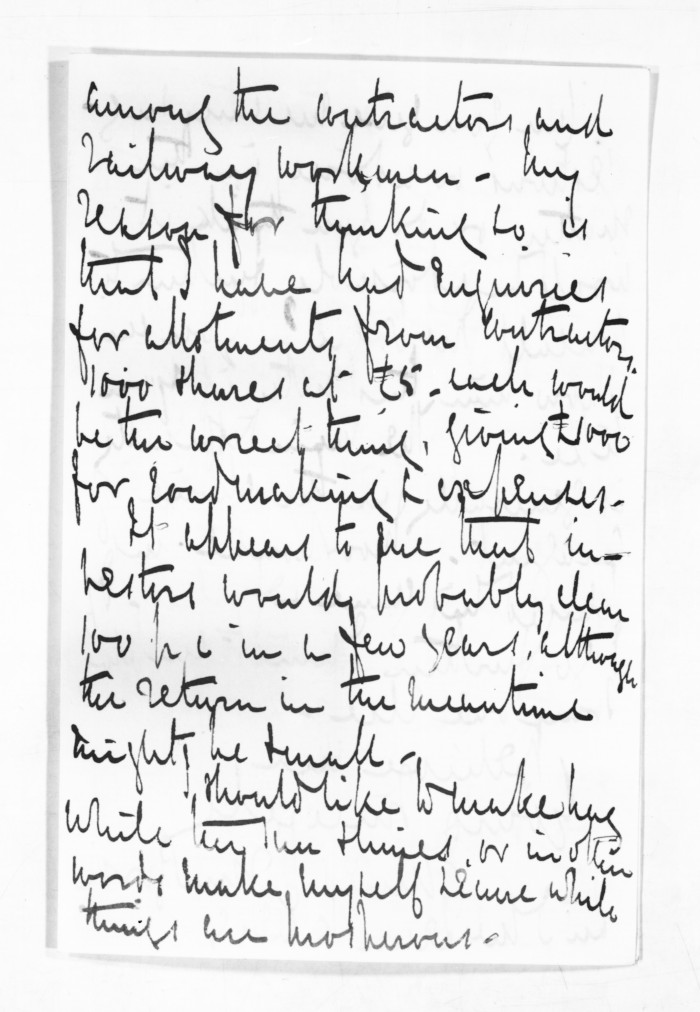 among the contractors and
railway workmen - My
reason for thinking so is
that I have had enquiries
for allotments from contractors.
1000 shares at £5 each would
be the correct thing, giving £1000
for roadmaking & expenses.
It appears to me that in-
vestors would probably clear
100 p c in a few years, although
the return in the meantime
might be small -
I should like to make hay
while the sun shines, or in other
words make myself secure while
things are prosperous -